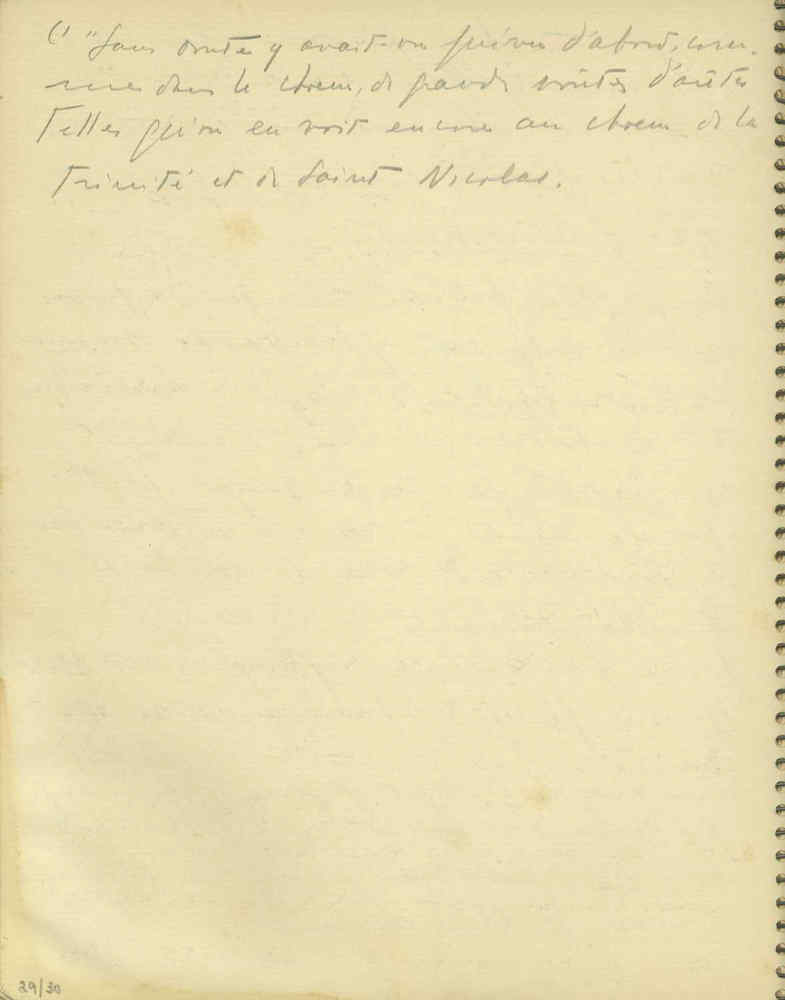 (1 "Sans doute y avait-on prévu d'abord, com-
me dans le choeur, de grandes voûtes d'arêtes
Telles qu'on en voit encore au choeur de la
Trinité et de Saint Nicolas.
29/30